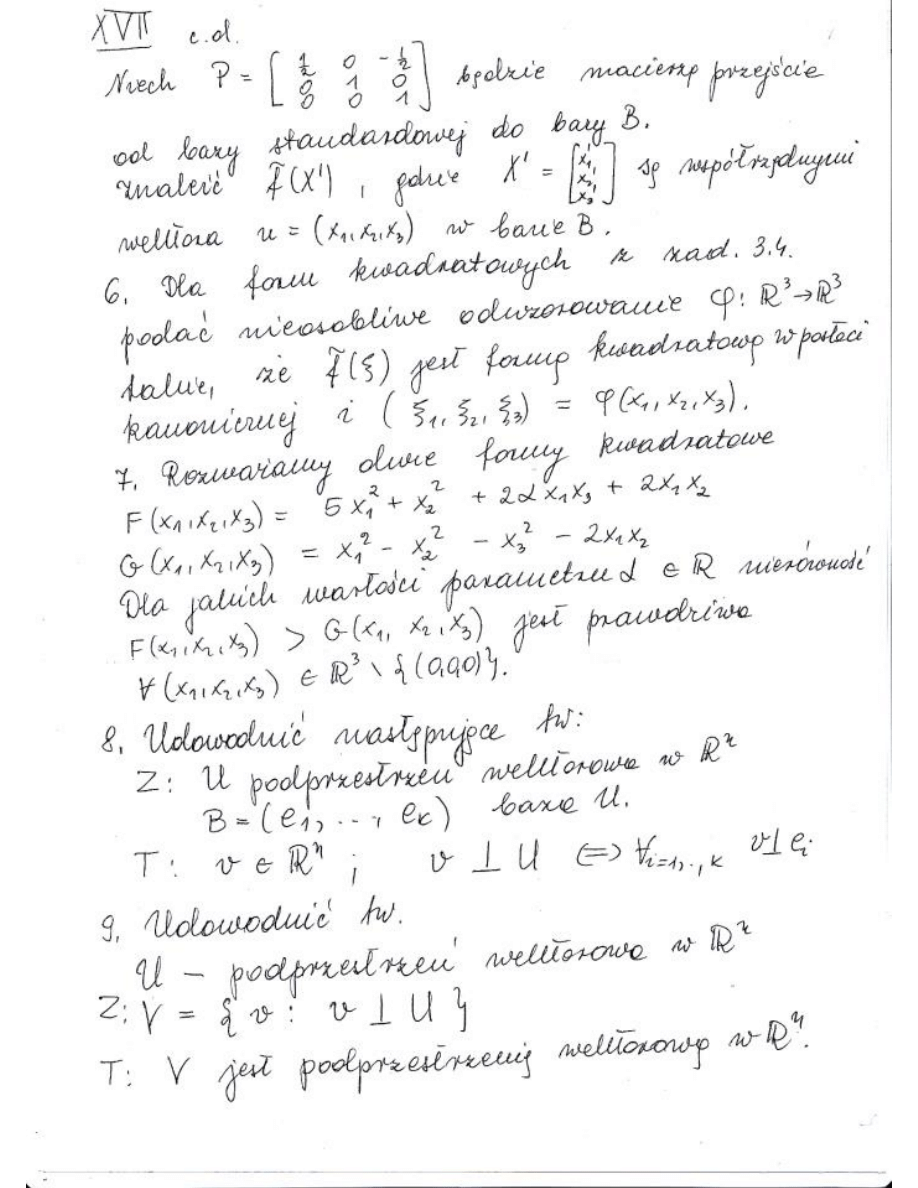 XVII c.d.
Niech P = [ 1/2 0 -1/2 ; 0 1 0 ; 0 0 1 ] będzie macierzą przejścia
od bazy standardowej do bazy B.
znaleźć f̃(X') , gdzie X' = [ x₁' ; x₂' ; x₃' ] są współrzędnymi
wektora u = (x₁,x₂,x₃) w bazie B.
6. Dla form kwadratowych z zad. 3.4.
podać nieosobliwe odwzorowanie φ: ℝ³→ℝ³
takie, że f̃(ξ) jest formą kwadratową w postaci
kanonicznej i (ξ₁, ξ₂, ξ₃) = φ(x₁, x₂, x₃).
7. Rozważamy dwie formy kwadratowe
F(x₁,x₂,x₃) = 5x₁² + x₂² + 2αx₁x₃ + 2x₁x₂
G(x₁,x₂,x₃) = x₁² - x₂² - x₃² - 2x₁x₂
Dla jakich wartości parametru α ∈ ℝ nierówność
F(x₁,x₂,x₃) > G(x₁, x₂,x₃) jest prawdziwa
∀(x₁,x₂,x₃) ∈ ℝ³ \ {(0,0,0)}.
8. Udowodnić następujące tw:
Z: U podprzestrzeń wektorowa w ℝⁿ
B = (e₁, ..., eₖ) baza U.
T: v ∈ ℝⁿ ; v ⊥ U ⟺ ∀ᵢ₌₁,..,ₖ v ⊥ eᵢ
9. Udowodnić tw.
U – podprzestrzeń wektorowa w ℝⁿ
Z: V = { v : v ⊥ U }
T: V jest podprzestrzenią wektorową w ℝⁿ.